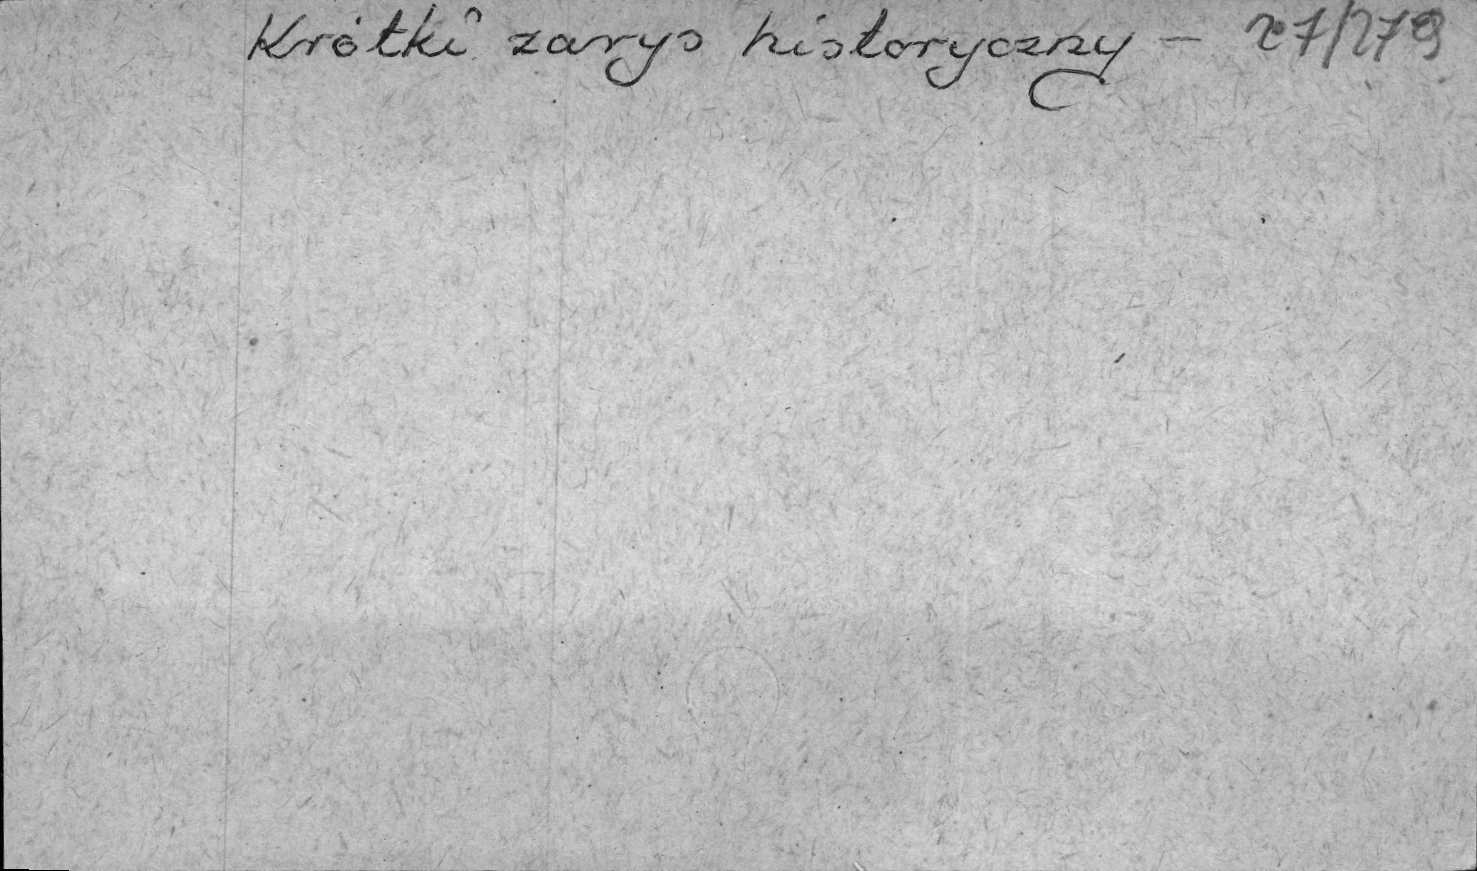 Krótki zarys historyczny – 27/279